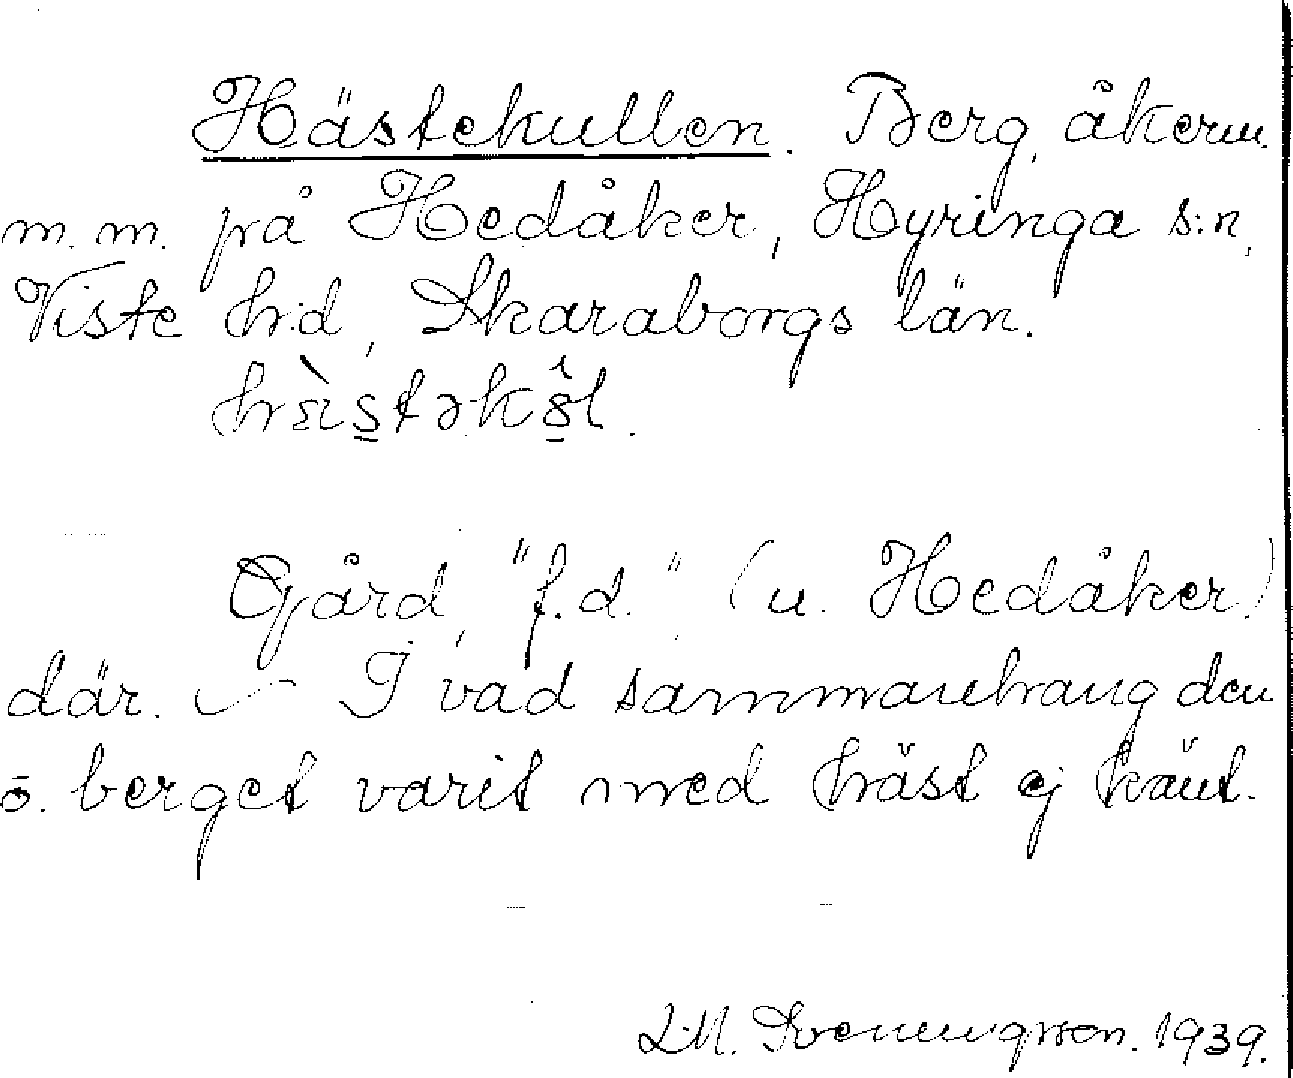 Hästekullen. Berg, åkerm.
m.m. på Hedåker, Hyringa s:n,
Viste h:d, Skaraborgs län.
Gård, "f.d." (u. Hedåker)
där. — I vad sammanhang den
o. berget varit med häst ej känt.
Svenungsson. 1939.